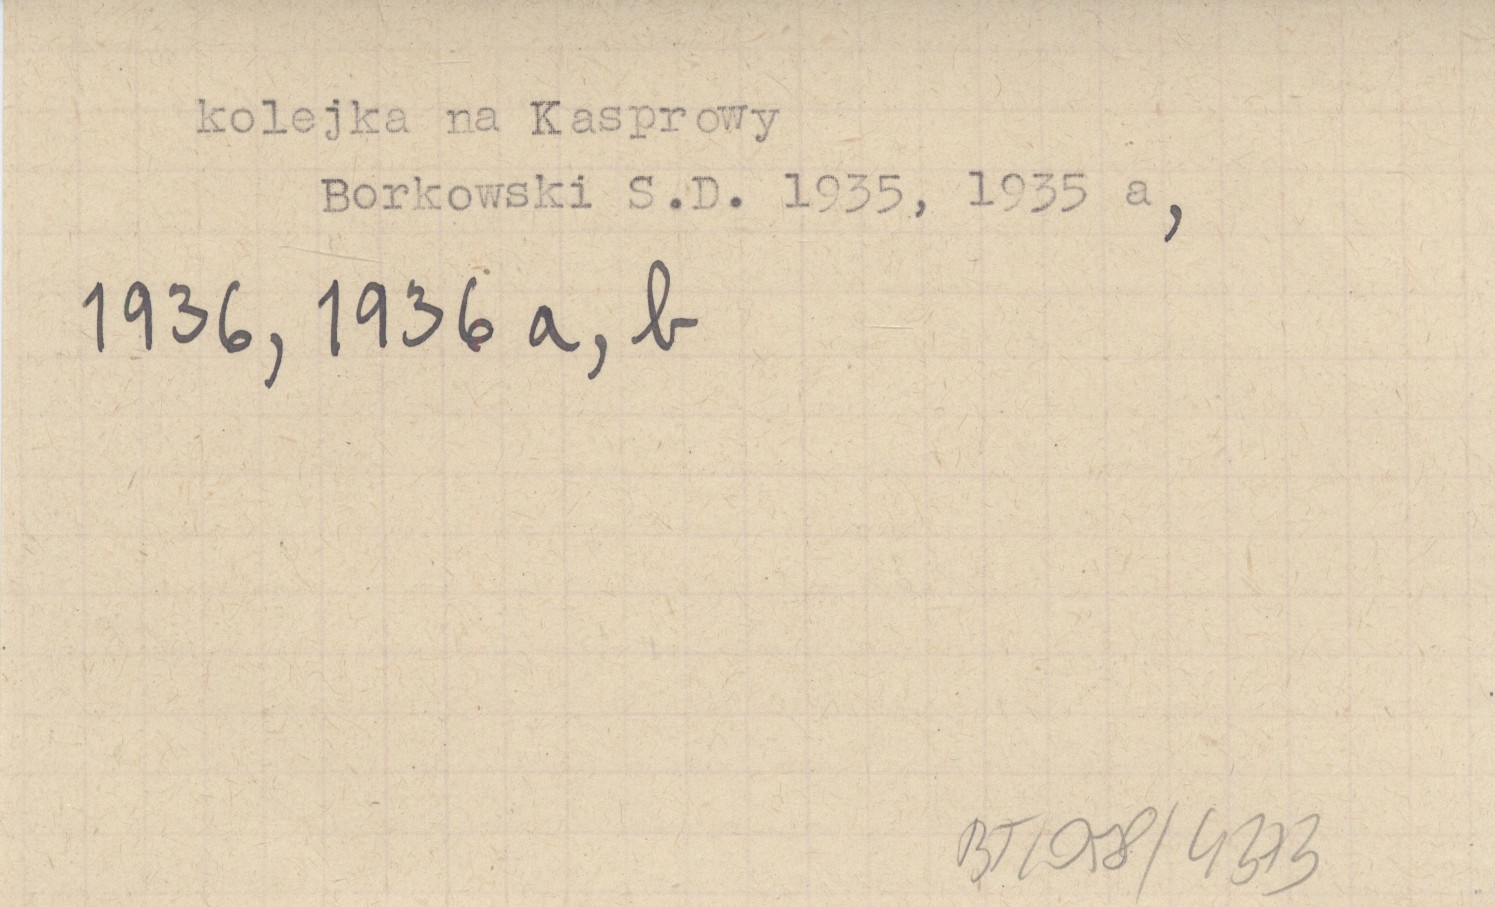 kolejka na Kasprowy
Borkowski S.D. 1935, 1935 a,
1936, 1936 a, b